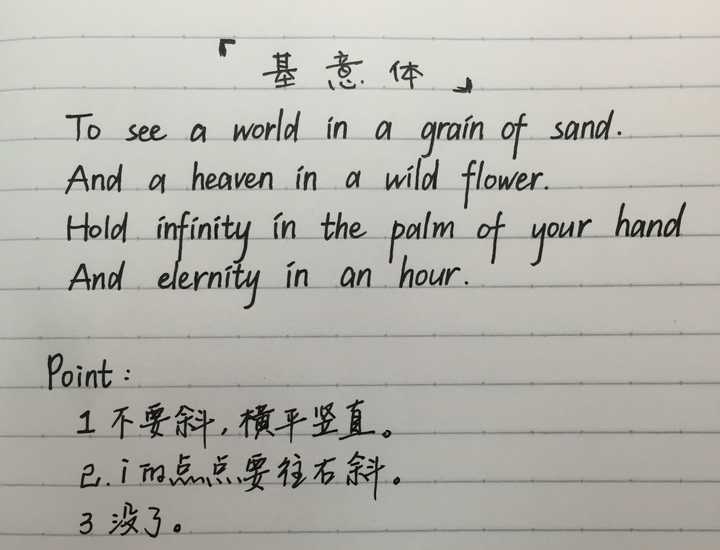 「基意体」
To see a world in a grain of sand.
And a heaven in a wild flower.
Hold infinity in the palm of your hand
And elernity in an hour.
Point:
1 不要斜,横平竖直。
2. i 的点点要往右斜。
3 没了。